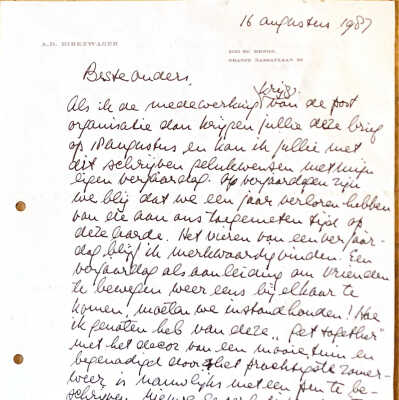 16 augustus 1987
A.D. BIRKZWAGER
Beste ouders,
krijg.
Als ik de medewerking van de post
organisatie dan krijgen jullie deze brief
op 18 augustus en kan ik jullie met
dit schrijven gelukwensen met mijn
eigen verjaardag. Op verjaardagen zijn
we blij dat we een jaar verloren hebben
van de aan ons toegemeten tijd op
deze aarde. Het vieren van een verjaar-
dag blijf ik merkwaardig vinden. Een
verjaardag als aanleiding om vrienden
te bewegen weer eens bij elkaar te
komen, moeten we instandhouden! Hoe
ik genoten heb van deze „get together"
met het decor van een mooie tuin en
begenadigd door het prachtigste zomer-
weer, is nauwelijks met een pen te be-
schrijven.